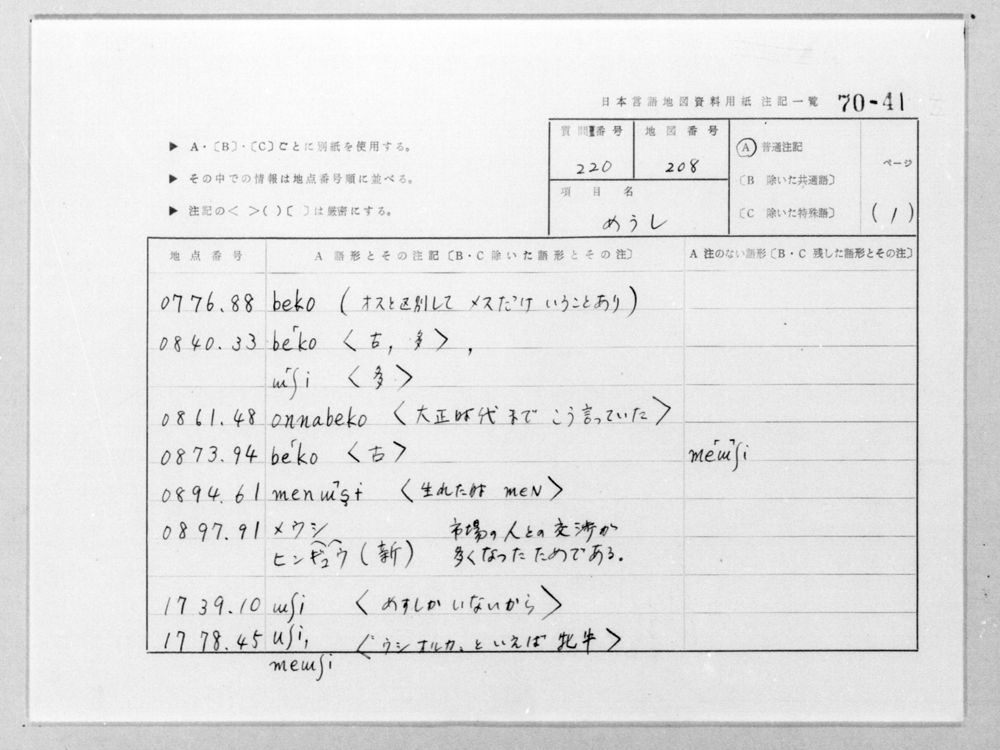 日本言語地図資料用紙 注記一覧 70-41
▶ A・〔B〕・〔C〕ごとに別紙を使用する。
▶ その中での情報は地点番号順に並べる。
▶ 注記の< >( )〔 〕は厳密にする。
質問番号 地図番号 Ⓐ 普通注記 ページ
220 208
〔B 除いた共通語〕
項目名
めうし
〔C 除いた特殊語〕 (1)
地点番号 A 語形とその注記〔B・C 除いた語形とその注〕 A 注のない語形〔B・C 残した語形とその注〕
0776.88 beko (オスと区別して メスだけ いうことあり)
0840.33 be˹ko <古, 多>,
ɯ˹ʃi <多>
0861.48 onnabeko <大正時代まで こう言っていた>
0873.94 be˹ko <古> me˹ɯ˺ʃi
0894.61 menɯ˺şɨ <生れた時 meN>
0897.91 メウシ 市場の人との交渉が
ヒンギュウ(新) 多くなったためである。
1739.10 ɯʃi <めすしか いないから>
1778.45 uʃi, <"ウシオルカ"といえば 牝牛>
meɯʃi